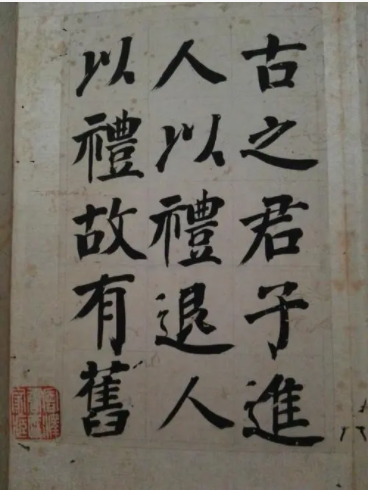 古之君子進
人以禮退人
以禮故有舊